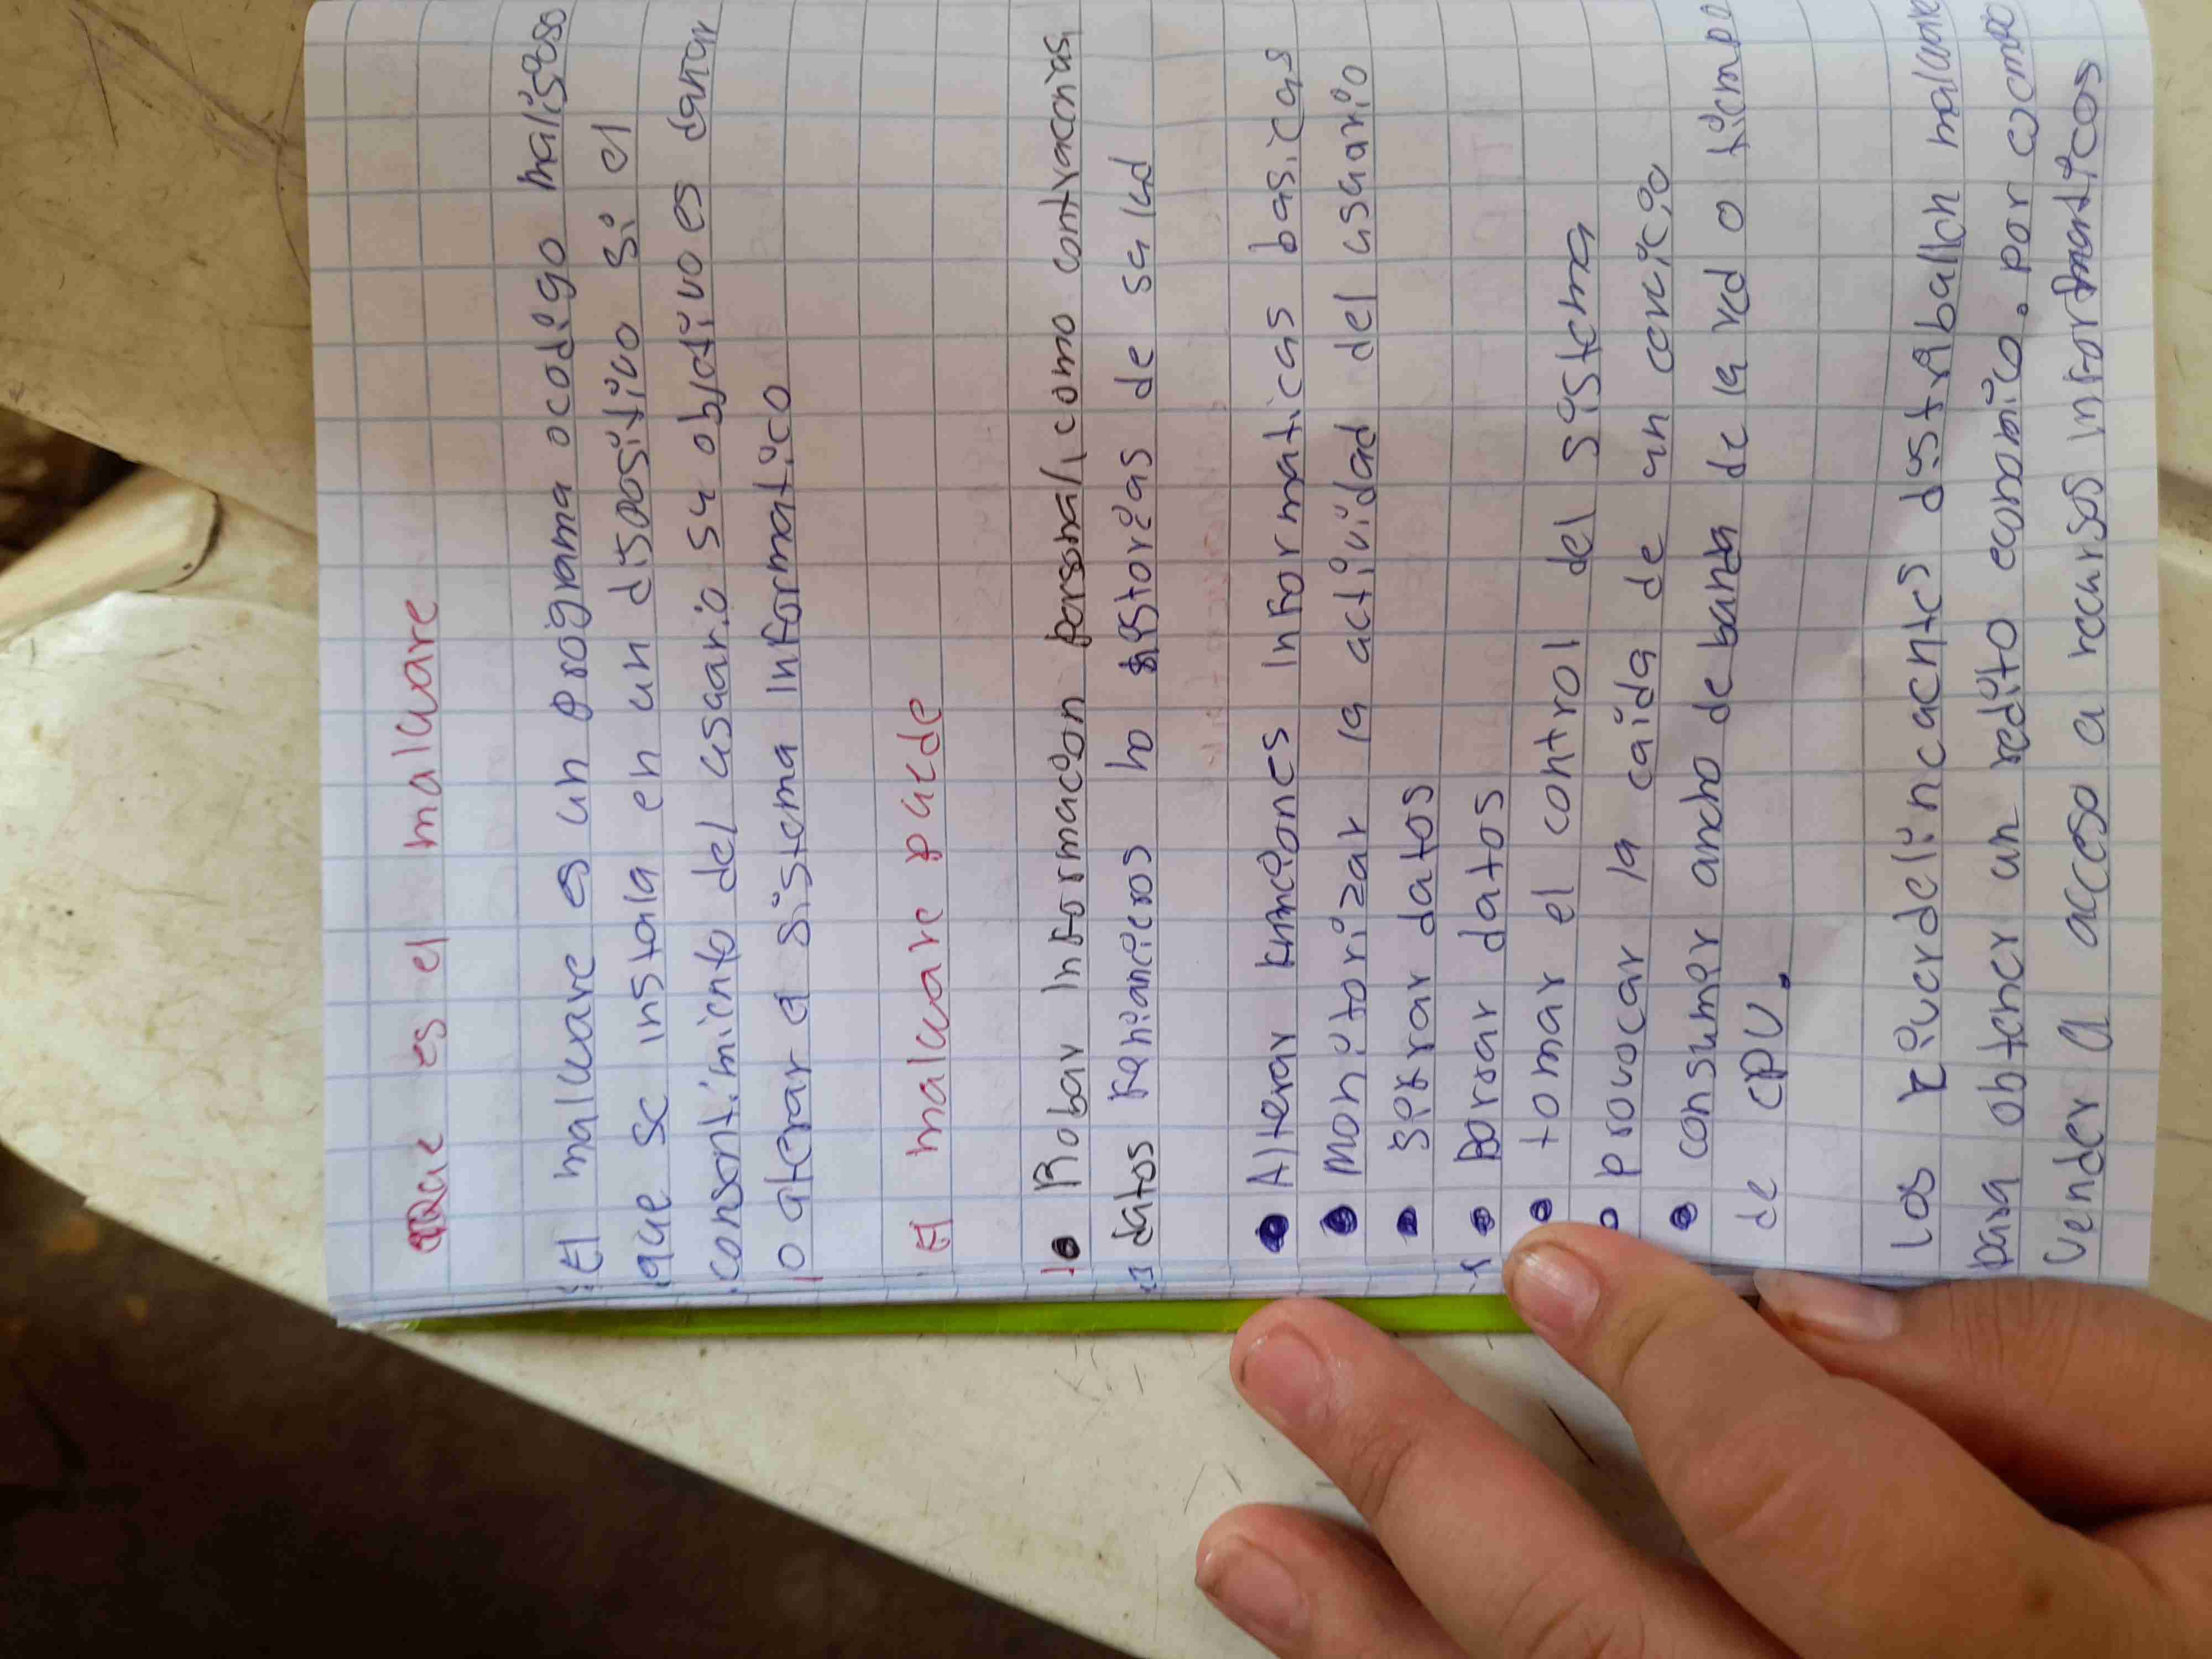 Que es el malware
El malware es un programa o codigo malisoso
que se instala en un dispositivo si el
consentimiento del usuario su objetivo es danar
o aterar a sistema informatico
El malware puede
Robar informacion personal, como contraconias,
datos fenancieros ho historias de salud
Alterar funciones informaticas basicas
Monitorizar la actividad del usuario
datos
Borrar datos
tomar el control del sistema
provocar la caida de un cervicio
consumer ancho de banda de la red o tiempo
de CPU.
los civerdelincuentes distriballen malware
para obtener un redito economico. por
vender a acceso a recursos informaticos